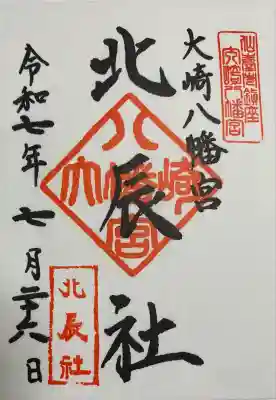 仙臺市鎮座
大崎八幡宮
大崎八幡宮
北辰社
八幡宮
大崎
令和七年七月二十六日
北辰社